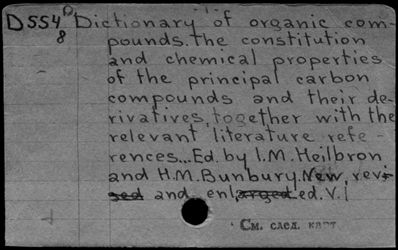 D554 Dictionary of organic com-
8 pounds. The constitution
and chemical properties
of the principal carbon
compounds and their de-
rivatives, together with the
relevant literature refe-
rences... Ed. by I.M. Heilbron
and H.M. Bunbury. New, revi-
sed and enlarged ed. V. I
См. след. карт